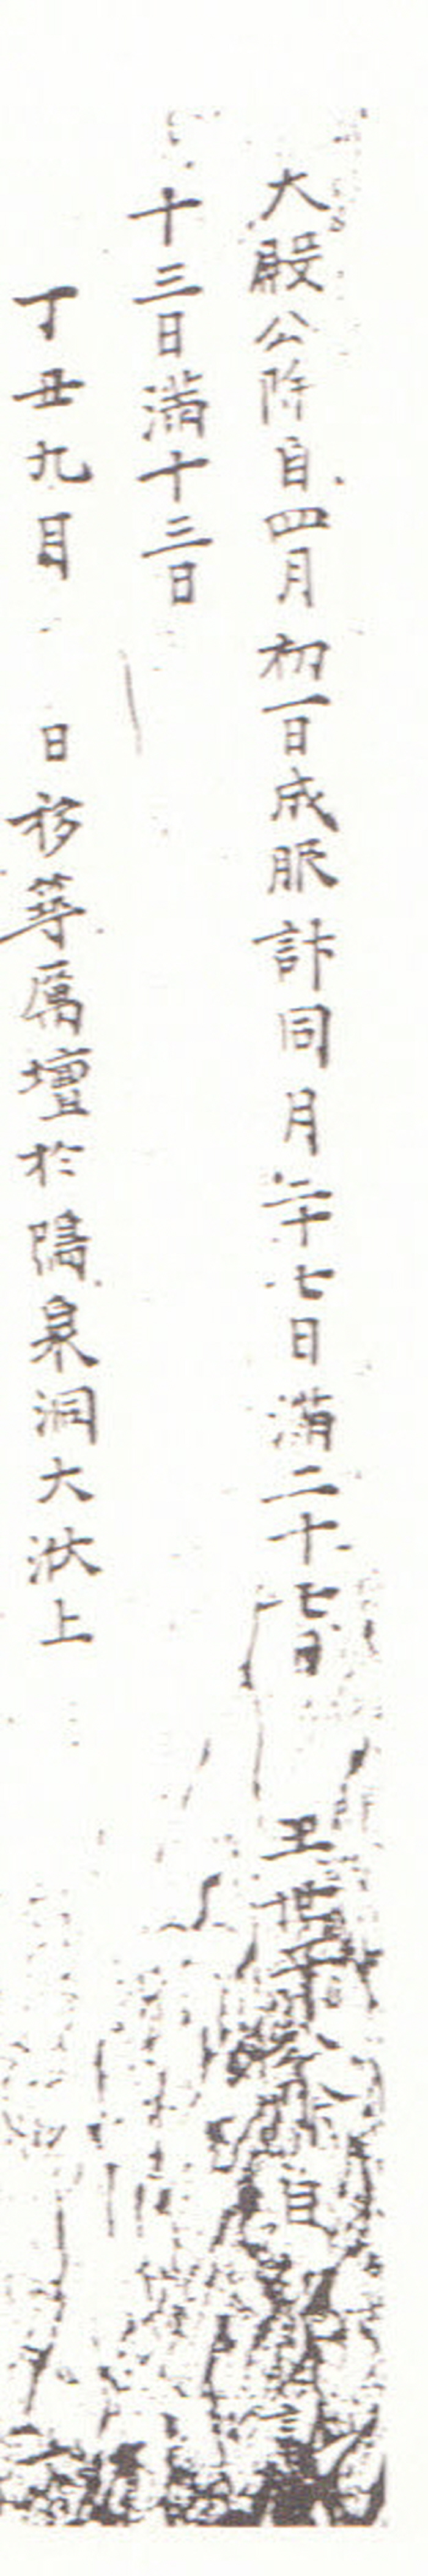 大殿公除自四月初一日成服計同月二十七日滿二十七日 王世子公除自
十三日滿十三日
丁丑九月 日移葬厲壇於隱泉洞大狀上